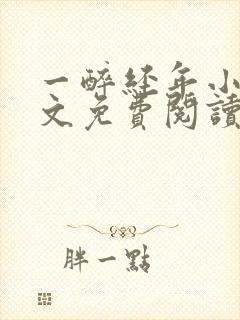 一醉经年小
文免費閱讀
胖一點